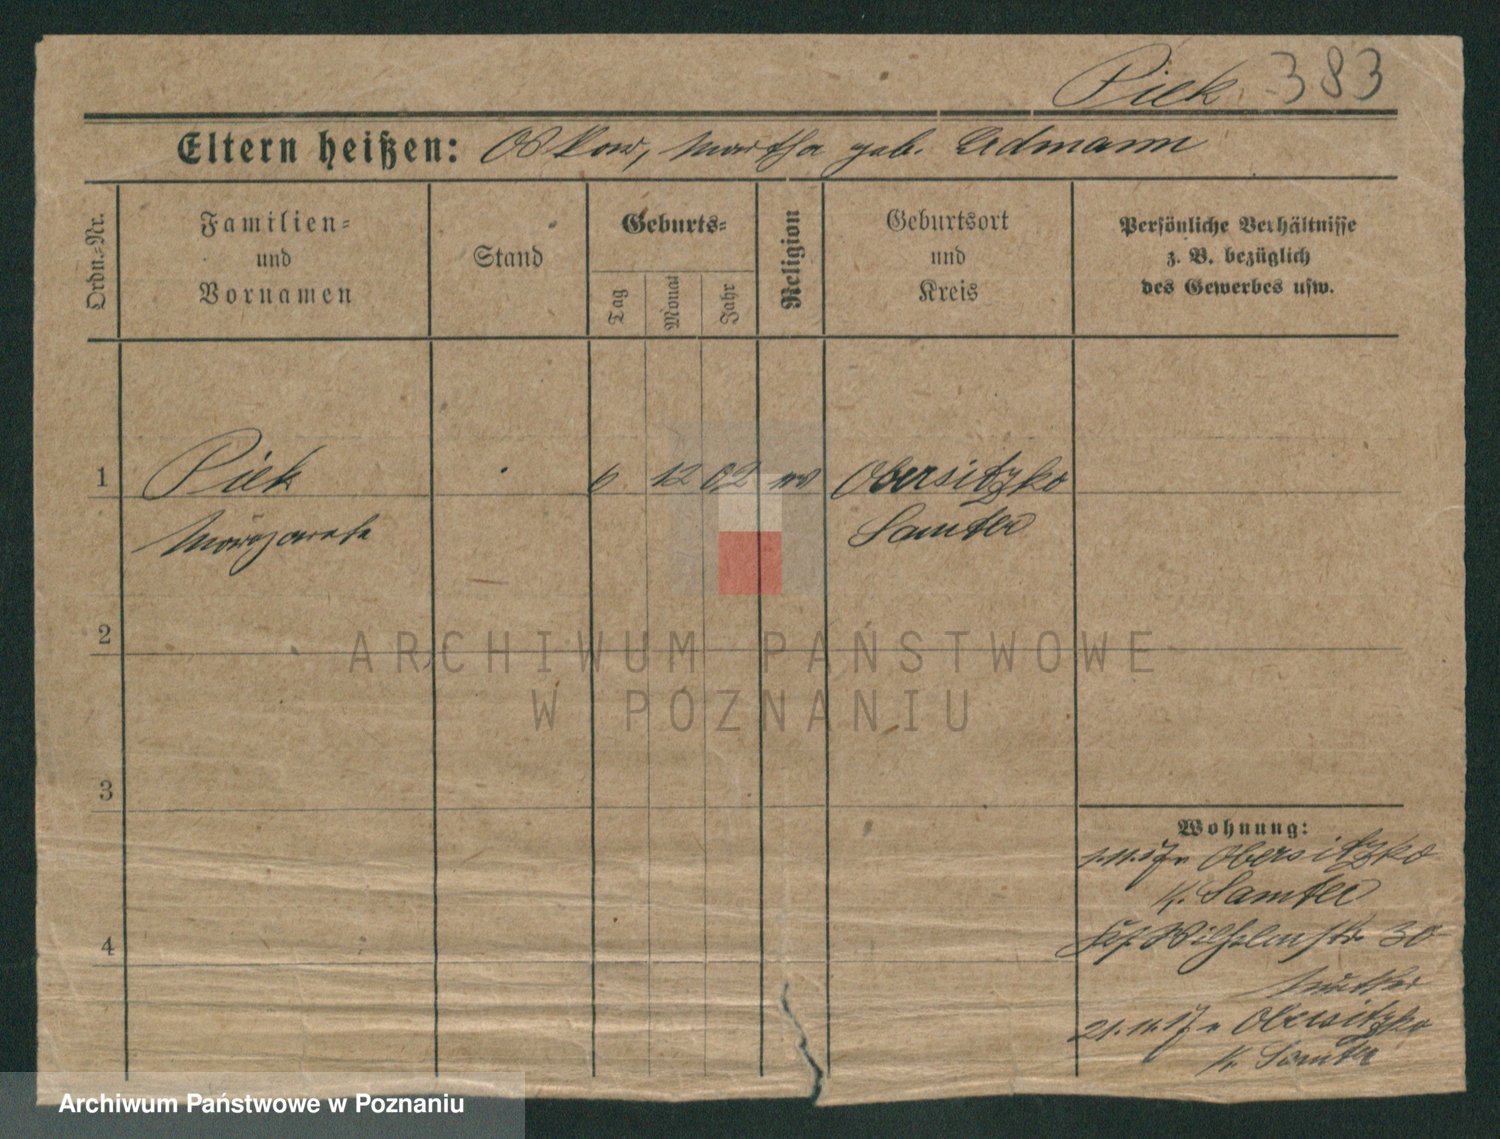 Piek 383
Eltern heißen: Oskar, Martha geb. Erdmann
Ordn.-Nr.
Familien-
und
Vornamen
Stand
Geburts-
Tag
Monat
Jahr
Religion
Geburtsort
und
Kreis
Persönliche Verhältnisse
z. B. bezüglich
des Gewerbes usw.
1 Piek 6 12 02 ev Obersitzko
Margarete Samter
2
3
4
Wohnung:
1.11.17 v Obersitzko
Kr. Samter
Wilhelmstr. 30
Mutter
21.11.17 n Obersitzko
Kr. Samter
ARCHIWUM PAŃSTWOWE
W POZNANIU
Archiwum Państwowe w Poznaniu